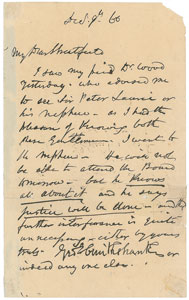 Dec. 9th 60
My Dear
I saw my friend Dr. Wood
yesterday - who advised me
to see Sir Peter Laurie or
his Nephew - as I had the
pleasure of knowing both
these Gentlemen. I went to
the Nephew - He will not
be able to attend the Board
tomorrow - but he knows
all about it and he says
justice will be done - and
further interference is quite
unnecessary - either by your-
self - Cruikshank or
indeed any one else.